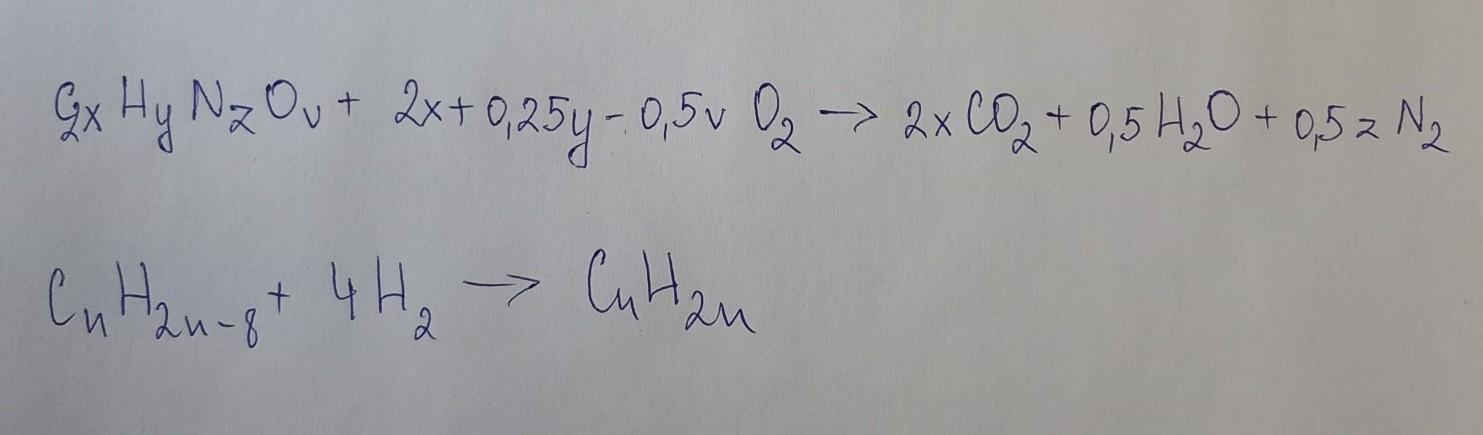 C₂ₓHᵧN_zOᵥ + 2x+0,25y-0,5v O₂ → 2x CO₂ + 0,5 H₂O + 0,5 z N₂
CₙH₂ₙ₋₈ + 4 H₂ → CₙH₂ₙ